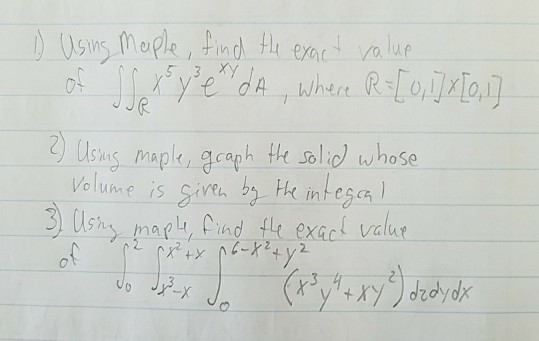 1) Using Maple, find the exact value
of ∬_R x^5 y^3 e^xy dA, where R=[0,1]x[0,1]
2) Using maple, graph the solid whose
volume is given by the integral
3) Using maple, find the exact value
of ∫_0^2 ∫_{x^3-x}^{x^2+x} ∫_0^{6-x^2+y^2} (x^3 y^4 + xy^2) dzdydx